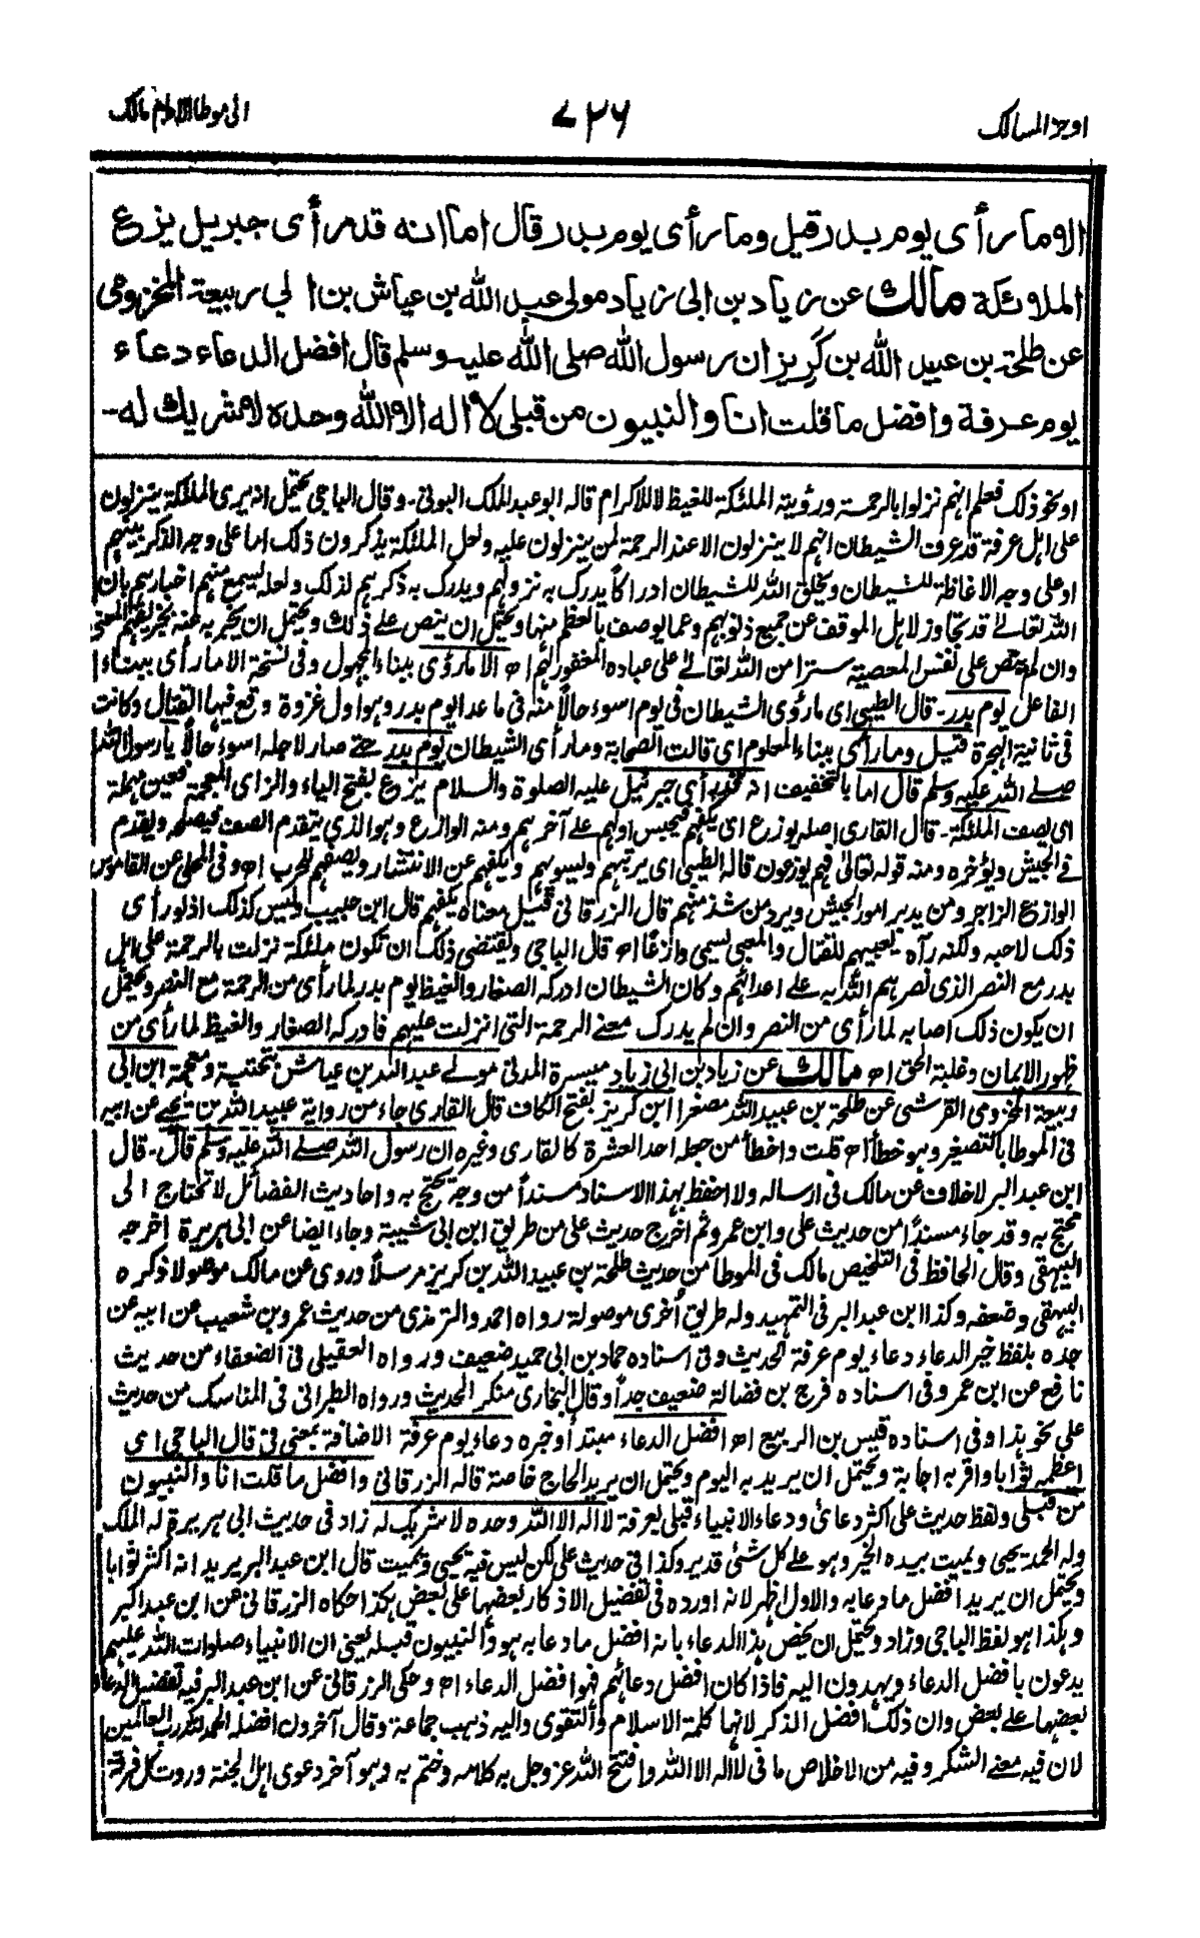 اوجز المسالك
٧٢٦
الى موطا الامام مالك
الا ما رأى يوم بدر قيل وما رأى يوم بدر قال اما انه قد رأى جبريل يزع
الملائكة مالك عن زياد بن ابى زياد مولى عبد الله بن عياش بن ابي ربيعة المخزومى
عن طلحة بن عبيد الله بن كَرِيز ان رسول الله صلى الله عليه وسلم قال افضل الدعاء دعاء
يوم عرفة وافضل ما قلت انا والنبيون من قبلى لا اله الا الله وحده لا شريك له-
او نحو ذلك فعلم انهم نزلوا بالرحمة ورؤية الملئكة للغيظ لا للاكرام قاله ابو عبد الملك البونى- وقال الباجى يحتمل انه يرى الملئكة ينزلون
على اهل عرفة قد عرف الشيطان انهم لا ينزلون الا عند الرحمة لمن ينزلون عليه ولعل الملئكة يذكرون ذلك اما على وجه الذكر بينهم
او على وجه الاغاظة للشيطان ويخلق الله للشيطان ادراكاً يدرك به نزولهم ويدرك به ذكرهم لذلك ولعله يسمع منهم اخبارهم بان
الله تعالى قد تجاوز لاهل الموقف عن جميع ذنوبهم وعما يوصف بالعظم منها ويحتمل ان ينص على ذلك ويحتمل ان يخبر به عنه بخبر يفهم المعنى
وان لم ينص على نفس المعصية سترا من الله تعالى على عباده المغفور لهم اه الا ما رؤى ببناء المجهول وفى نسخة الا ما رأى ببناء
الفاعل يوم بدر- قال الطيبى اى ما رؤى الشيطان فى يوم اسوء حالاً منه فى ما عدا يوم بدر وهو اول غزوة وقع فيها القتال وكانت
فى ثانية الهجرة قيل وما رأى ببناء المعلوم اى قالت الصحابة وما رأى الشيطان يوم بدر حتى صار لاجله اسوء حالاً يا رسول الله
صلى الله عليه وسلم قال اما بالتخفيف انه قد رأى جبرئيل عليه الصلوة والسلام يزع بفتح الياء والزاى المعجمة فعين مهملة
اى يصف الملئكة- قال القارى اصله يوزع اى يكفهم فيحبس اولهم على آخرهم ومنه الوازع وهو الذى يتقدم الصف فيصلحه ويقدم
فى الجيش ويؤخره ومنه قوله تعالى فهم يوزعون قاله الطيبى اى يرتبهم ويسويهم ويكفهم عن الانتشار ويصفهم للحرب اه وفى المحلى عن القاموس
الوازع الزاجر ومن يدبر امور الجيش ويرد من شذ منهم قال الزرقانى قيل معناه يكفهم قال ابن حبيب وليس كذلك اذ لو رأى
ذلك لاحبه ولكنه رآه يعبيهم للقتال والمعبى يسمى وازعًا اه قال الباجى ويقتضى ذلك ان تكون ملئكة نزلت بالرحمة على اهل
بدر مع النصر الذى نصرهم الله به على اعدائهم وكان الشيطان ادركه الصغار والغيظ يوم بدر لما رأى من الرحمة مع النصر ويحتمل
ان يكون ذلك اصابه لما رأى من النصر وان لم يدرك معنى الرحمة التى انزلت عليهم فادركه الصغار والغيظ لما رأى من
ظهور الايمان وغلبة الحق اه مالك عن زياد بن ابى زياد ميسرة المدنى مولى عبد الله بن عياش بتحتية ومعجمة ابن ابى
ربيعة المخزومى القرشى عن طلحة بن عبيد الله مصغرا ابن كريز بفتح الكاف قال القارى جاء من رواية عبيد الله بن يحيى عن ابيه
فى الموطا بالتصغير وهو خطأ اه قلت واخطأ من جعله احد العشرة كالقارى وغيره ان رسول الله صلى الله عليه وسلم قال- قال
ابن عبد البر لا خلاف عن مالك فى ارساله ولا احفظ بهذا الاسناد مسنداً من وجه يحتج به واحاديث الفضائل لا تحتاج الى
محتج به وقد جاء مسنداً من حديث على وابن عمرو ثم اخرج حديث على من طريق ابن ابى شيبة وجاء ايضا عن ابى هريرة اخرجه
البيهقى وقال الحافظ فى التلخيص مالك فى الموطا من حديث طلحة بن عبيد الله بن كريز مرسلاً وروى عن مالك موصولا ذكره
البيهقى وضعفه وكذا ابن عبد البر فى التمهيد وله طريق أخرى موصولة رواه احمد والترمذى من حديث عمرو بن شعيب عن ابيه عن
جده بلفظ خير الدعاء دعاء يوم عرفة الحديث وفى اسناده حماد بن ابى حميد ضعيف ورواه العقيلى فى الضعفاء من حديث
نافع عن ابن عمر وفى اسناده فرج بن فضالة ضعيف جداً وقال البخارى منكر الحديث ورواه الطبرانى فى المناسك من حديث
على نحو هذا وفى اسناده قيس بن الربيع اه افضل الدعاء مبتدأ وخبره دعاء يوم عرفة الاضافة بمعنى فى قال الباجى اى
اعظمه ثوابا واقربه اجابة ويحتمل ان يريد به اليوم ويحتمل ان يريد الحاج خاصة قاله الزرقانى وافضل ما قلت انا والنبيون
من قبلى ولفظ حديث على اكثر دعائى ودعاء الانبياء قبلى بعرفة لا اله الا الله وحده لا شريك له زاد فى حديث ابى هريرة له الملك
وله الحمد يحيى ويميت بيده الخير وهو على كل شئ قدير وكذا فى حديث على لكن ليس فيه يحيى ويميت قال ابن عبد البر يريد انه اكثر ثوابا
ويحتمل ان يريد افضل ما دعا به والاول اظهر لانه اورده فى تفضيل الاذكار بعضها على بعض هكذا حكاه الزرقانى عن ابن عبد البر
وهكذا هو لفظ الباجى وزاد ويحتمل ان يخص هذا الدعاء بانه افضل ما دعا به هو والنبيون قبله يعنى ان الانبياء صلوات الله عليهم
يدعون بافضل الدعاء ويهدون اليه فاذا كان افضل دعائهم فهو افضل الدعاء اه وحكى الزرقانى عن ابن عبد البر فيه تفضيل الدعاء
بعضها على بعض وان ذلك افضل الذكر لانها كلمة الاسلام والتقوى واليه ذهب جماعة وقال آخرون افضله الحمد لله رب العالمين
لان فيه معنى الشكر وفيه من الاخلاص ما فى لا اله الا الله وافتتح الله عز وجل به كلامه وختم به وهو آخر دعوى اهل الجنة وروت كل فرقة